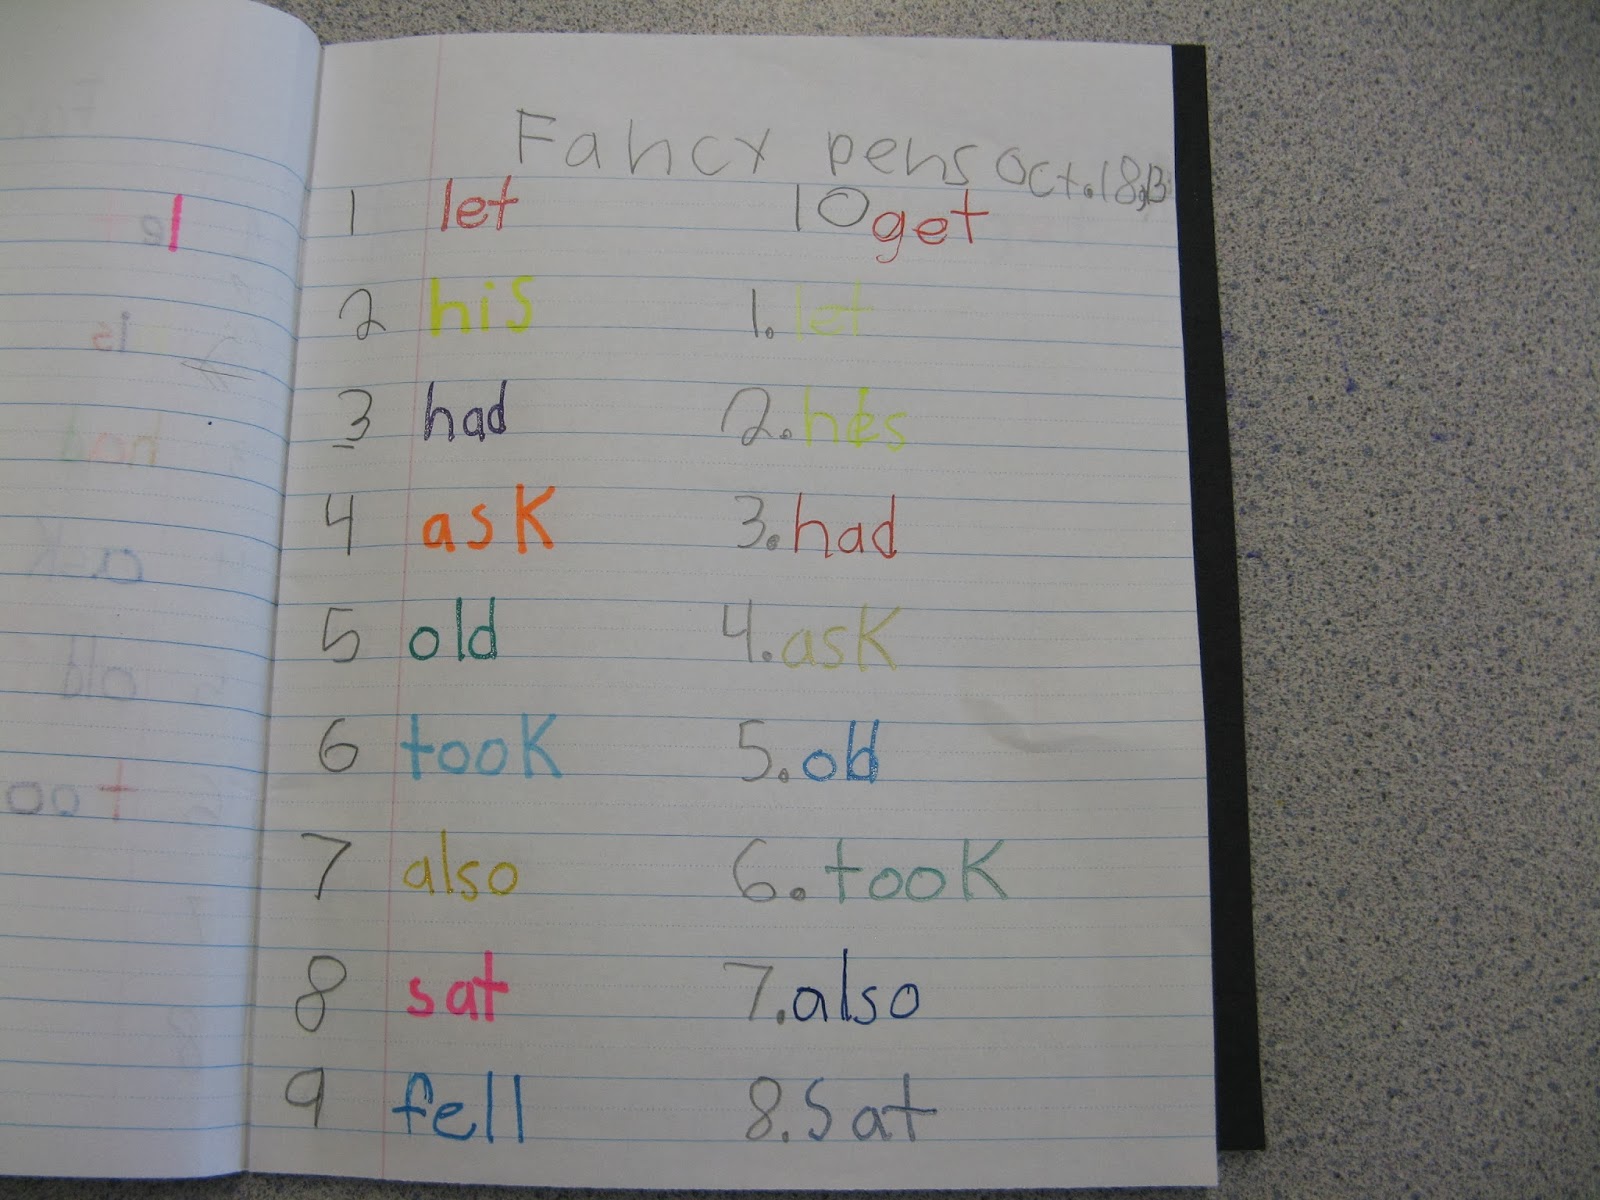 Fancy pens Oct. 18, 13
1 let
2 his
3 had
4 ask
5 old
6 took
7 also
8 sat
9 fell
10 get
1. let
2. his
3. had
4. ask
5. old
6. took
7. also
8. sat